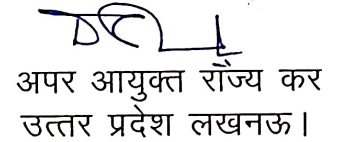 अपर आयुक्त राज्य कर
उत्तर प्रदेश लखनऊ।